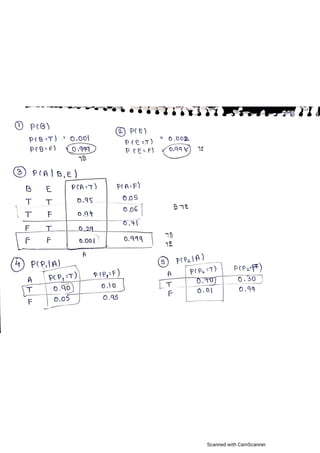 ① P(B)
P(B=T) = 0.001
P(B=F) = 0.999
7B
② P(E)
P(E=T) = 0.002
P(E=F) = 0.998
7E
③ P(A|B,E)
B E P(A=T) P(A=F)
T T 0.95 0.05
T F 0.94 0.06
B 7E
F T 0.29 0.71
F F 0.001 0.999
7B
7E
A
④ P(P₁|A)
A P(P₁=T) P(P₁=F)
T 0.90 0.10
F 0.05 0.95
⑤ P(P₂|A)
A P(P₂=T) P(P₂=F)
T 0.70 0.30
F 0.01 0.99
Scanned with CamScanner